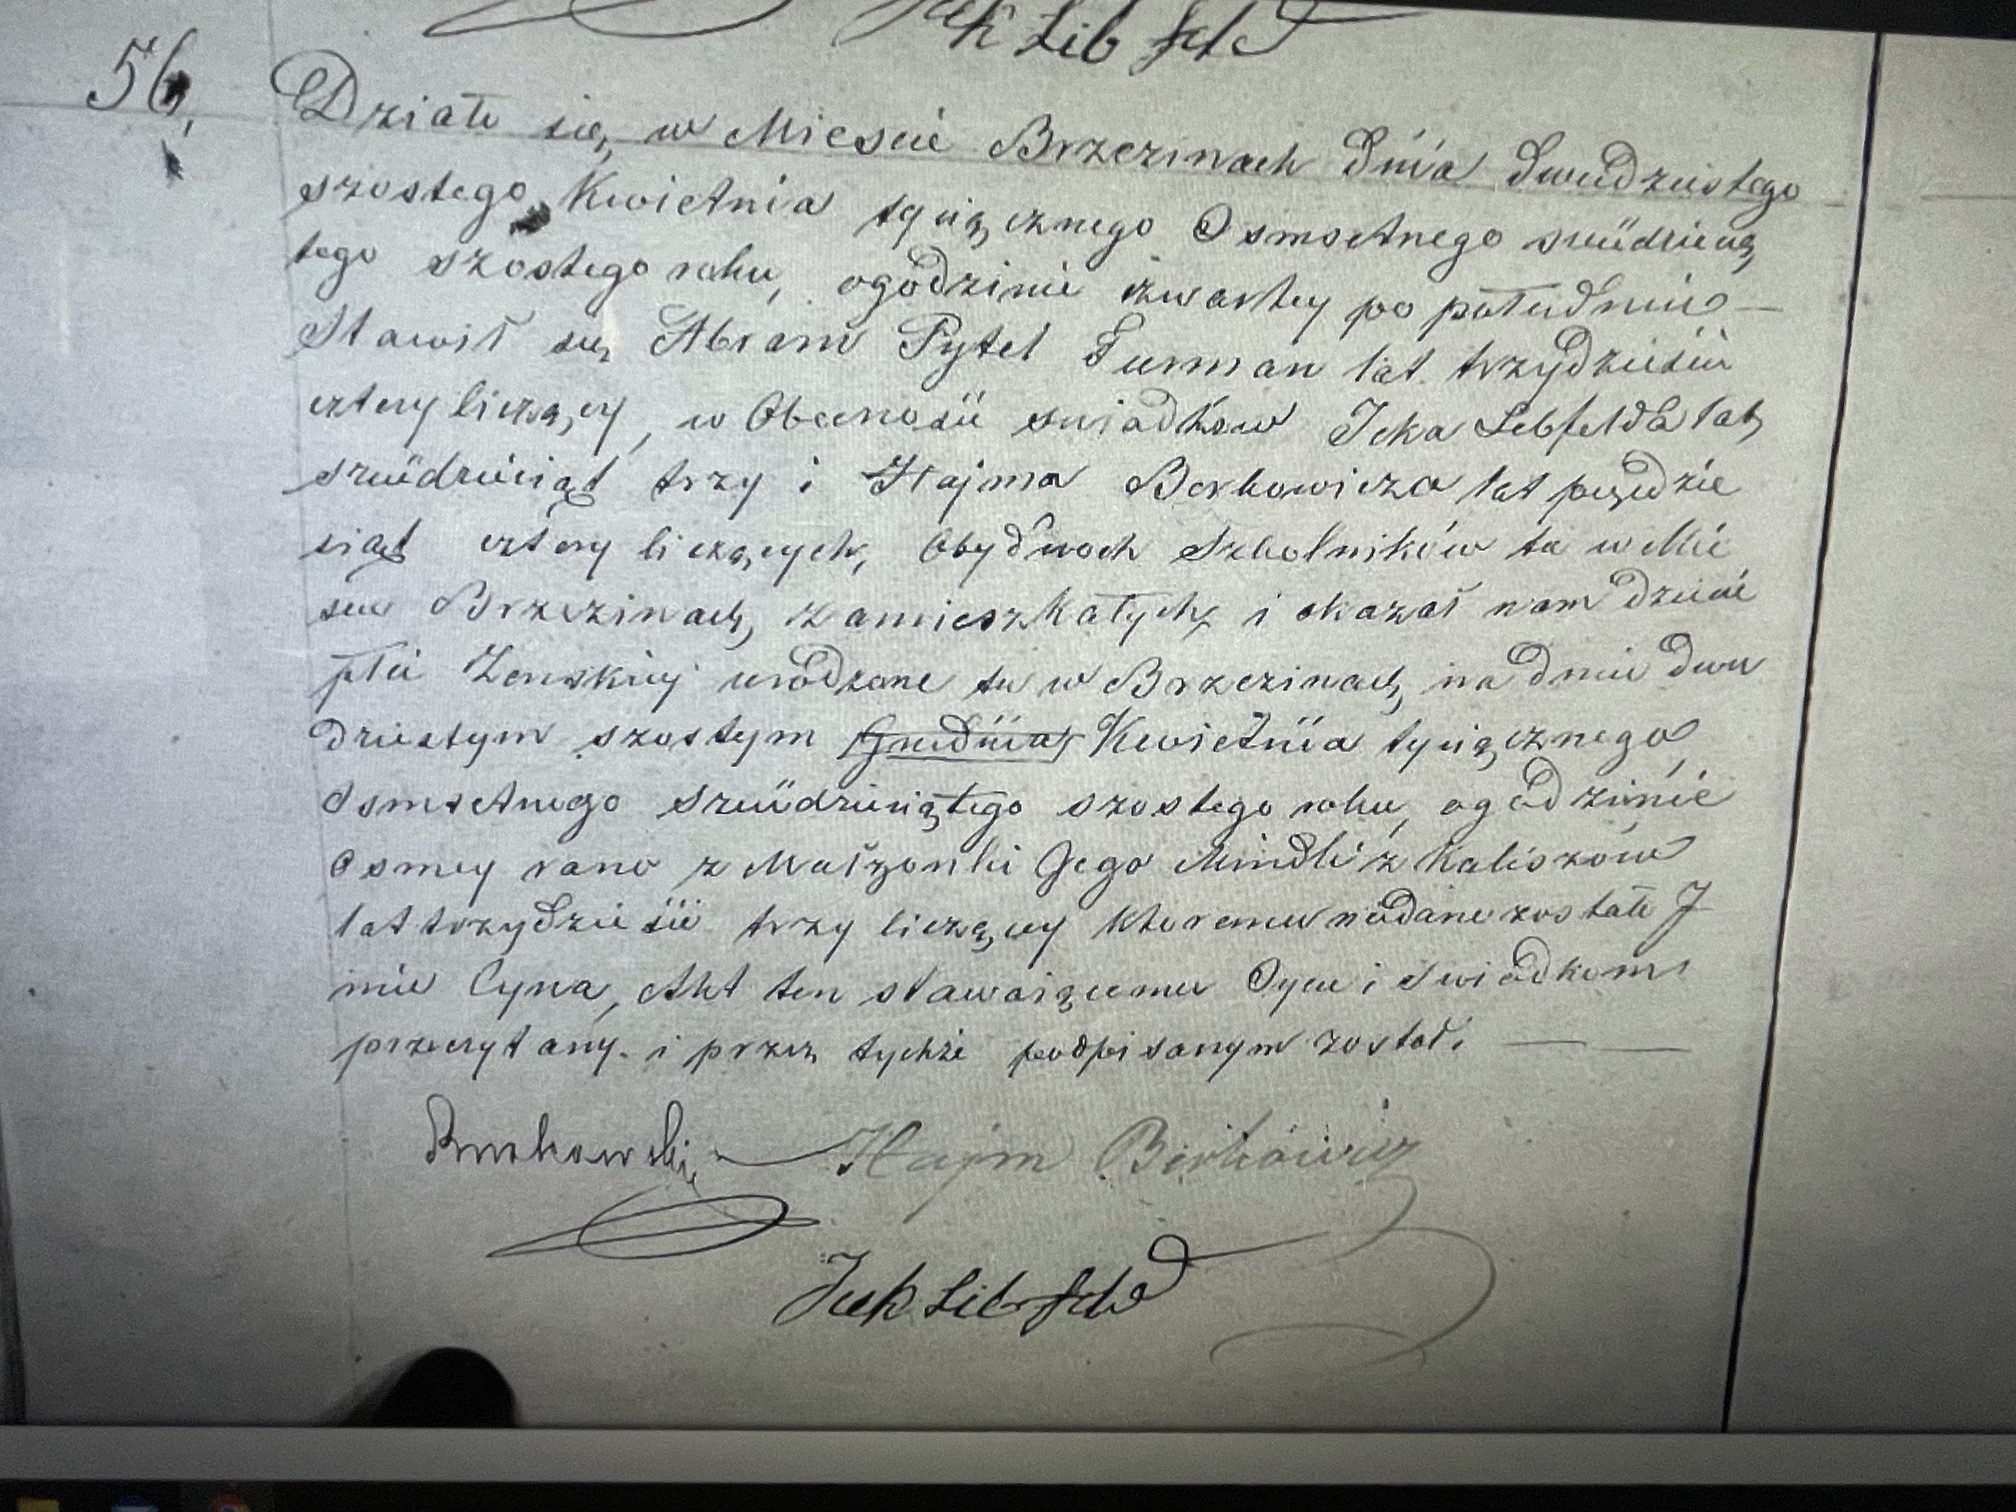 Jck Lib feld
56.
Działo się, w Mieście Brzezinach dnia dwudziestego
szostego Kwietnia tysiącznego Osmsetnego sześdziesią
tego szostego roku, ogodzinie czwartey po południu —
Stawił się, Abram Pytel Furman lat trzydzieści
cztery liczący, w Obecności swiadków Icka Lebfelda lat,
sześdziesiąt trzy i Hajma Berkowicza lat piędzie
siąt cztery liczących, Obydwoch Szkolników tu w Mie
scie Brzezinach, zamieszkałych, i okazał nam dziecie
płci Zenskiej urodzone tu w Brzezinach, na dniu dwu
dziestym szostym Grudnia Kwietnia tysiącznego,
Osmsetnego sześdziesiątego szostego roku, ogodzinie
osmey rano z Małżonki Jego Mindli z Kaliszów
lat trzydzieści trzy liczący ktoremu nadane zostało J
mie Cyna, Akt ten stawaiącemu Oycu i swiadkom
przeczytany. i przez tychże podpisanym został. — —
Hajm Berkowicz
Jck Lib feld